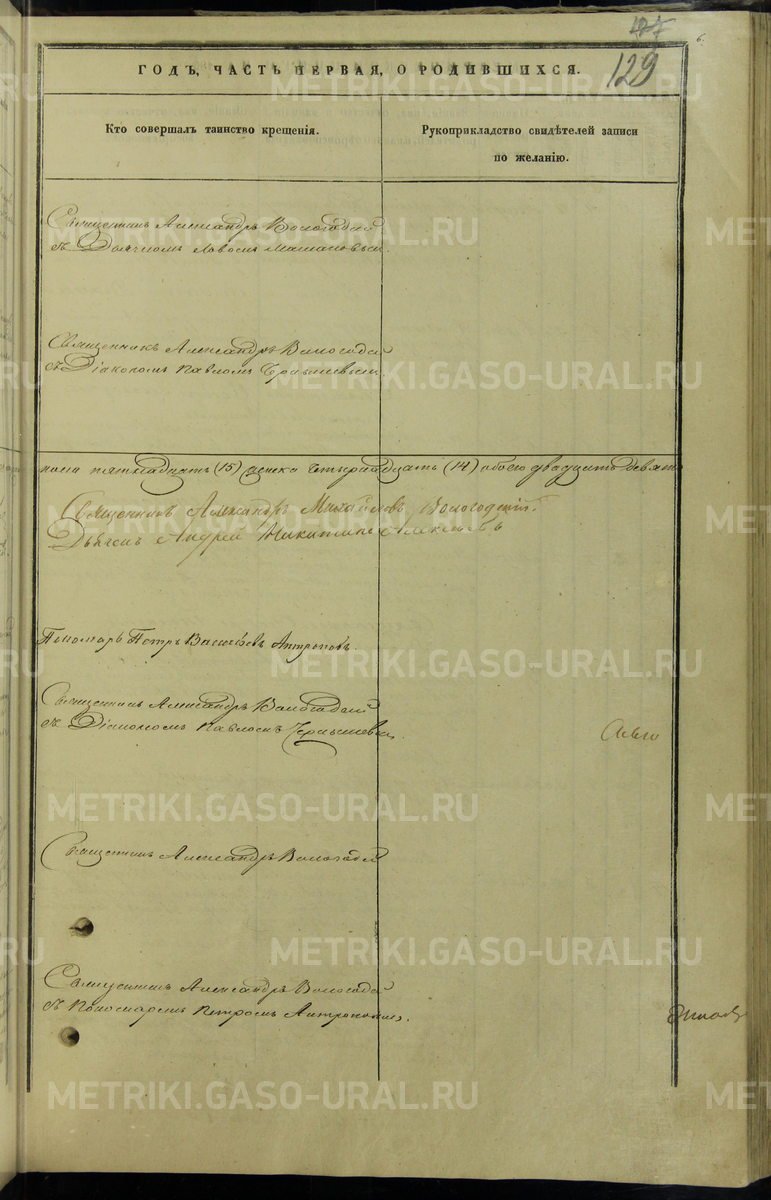 127
129
6.
ГОДЪ, ЧАСТЬ ПЕРВАЯ, О РОДИВШИХСЯ.
Кто совершалъ таинство крещенія.
Рукоприкладство свидѣтелей записи
по желанію.
Священникъ Александръ Вологодскій
съ
Священникъ Александръ Вологодскій
съ Діакономъ Павломъ
пола пятнадцать (15) женска четырнадцать (14) обоего двадцать девять
Священникъ Александръ Михайловъ Вологодскій.
Дьячекъ Андрей Никитинъ Алексѣевъ
Пономарь Петръ Васильевъ Антроповъ.
Священникъ Александръ Вологодскій
съ Діакономъ Павломъ
Священникъ Александръ Вологодскій
Священникъ Александръ Вологодскій
съ Пономаремъ Петромъ Антроповымъ.
METRIKI.GASO-URAL.RU